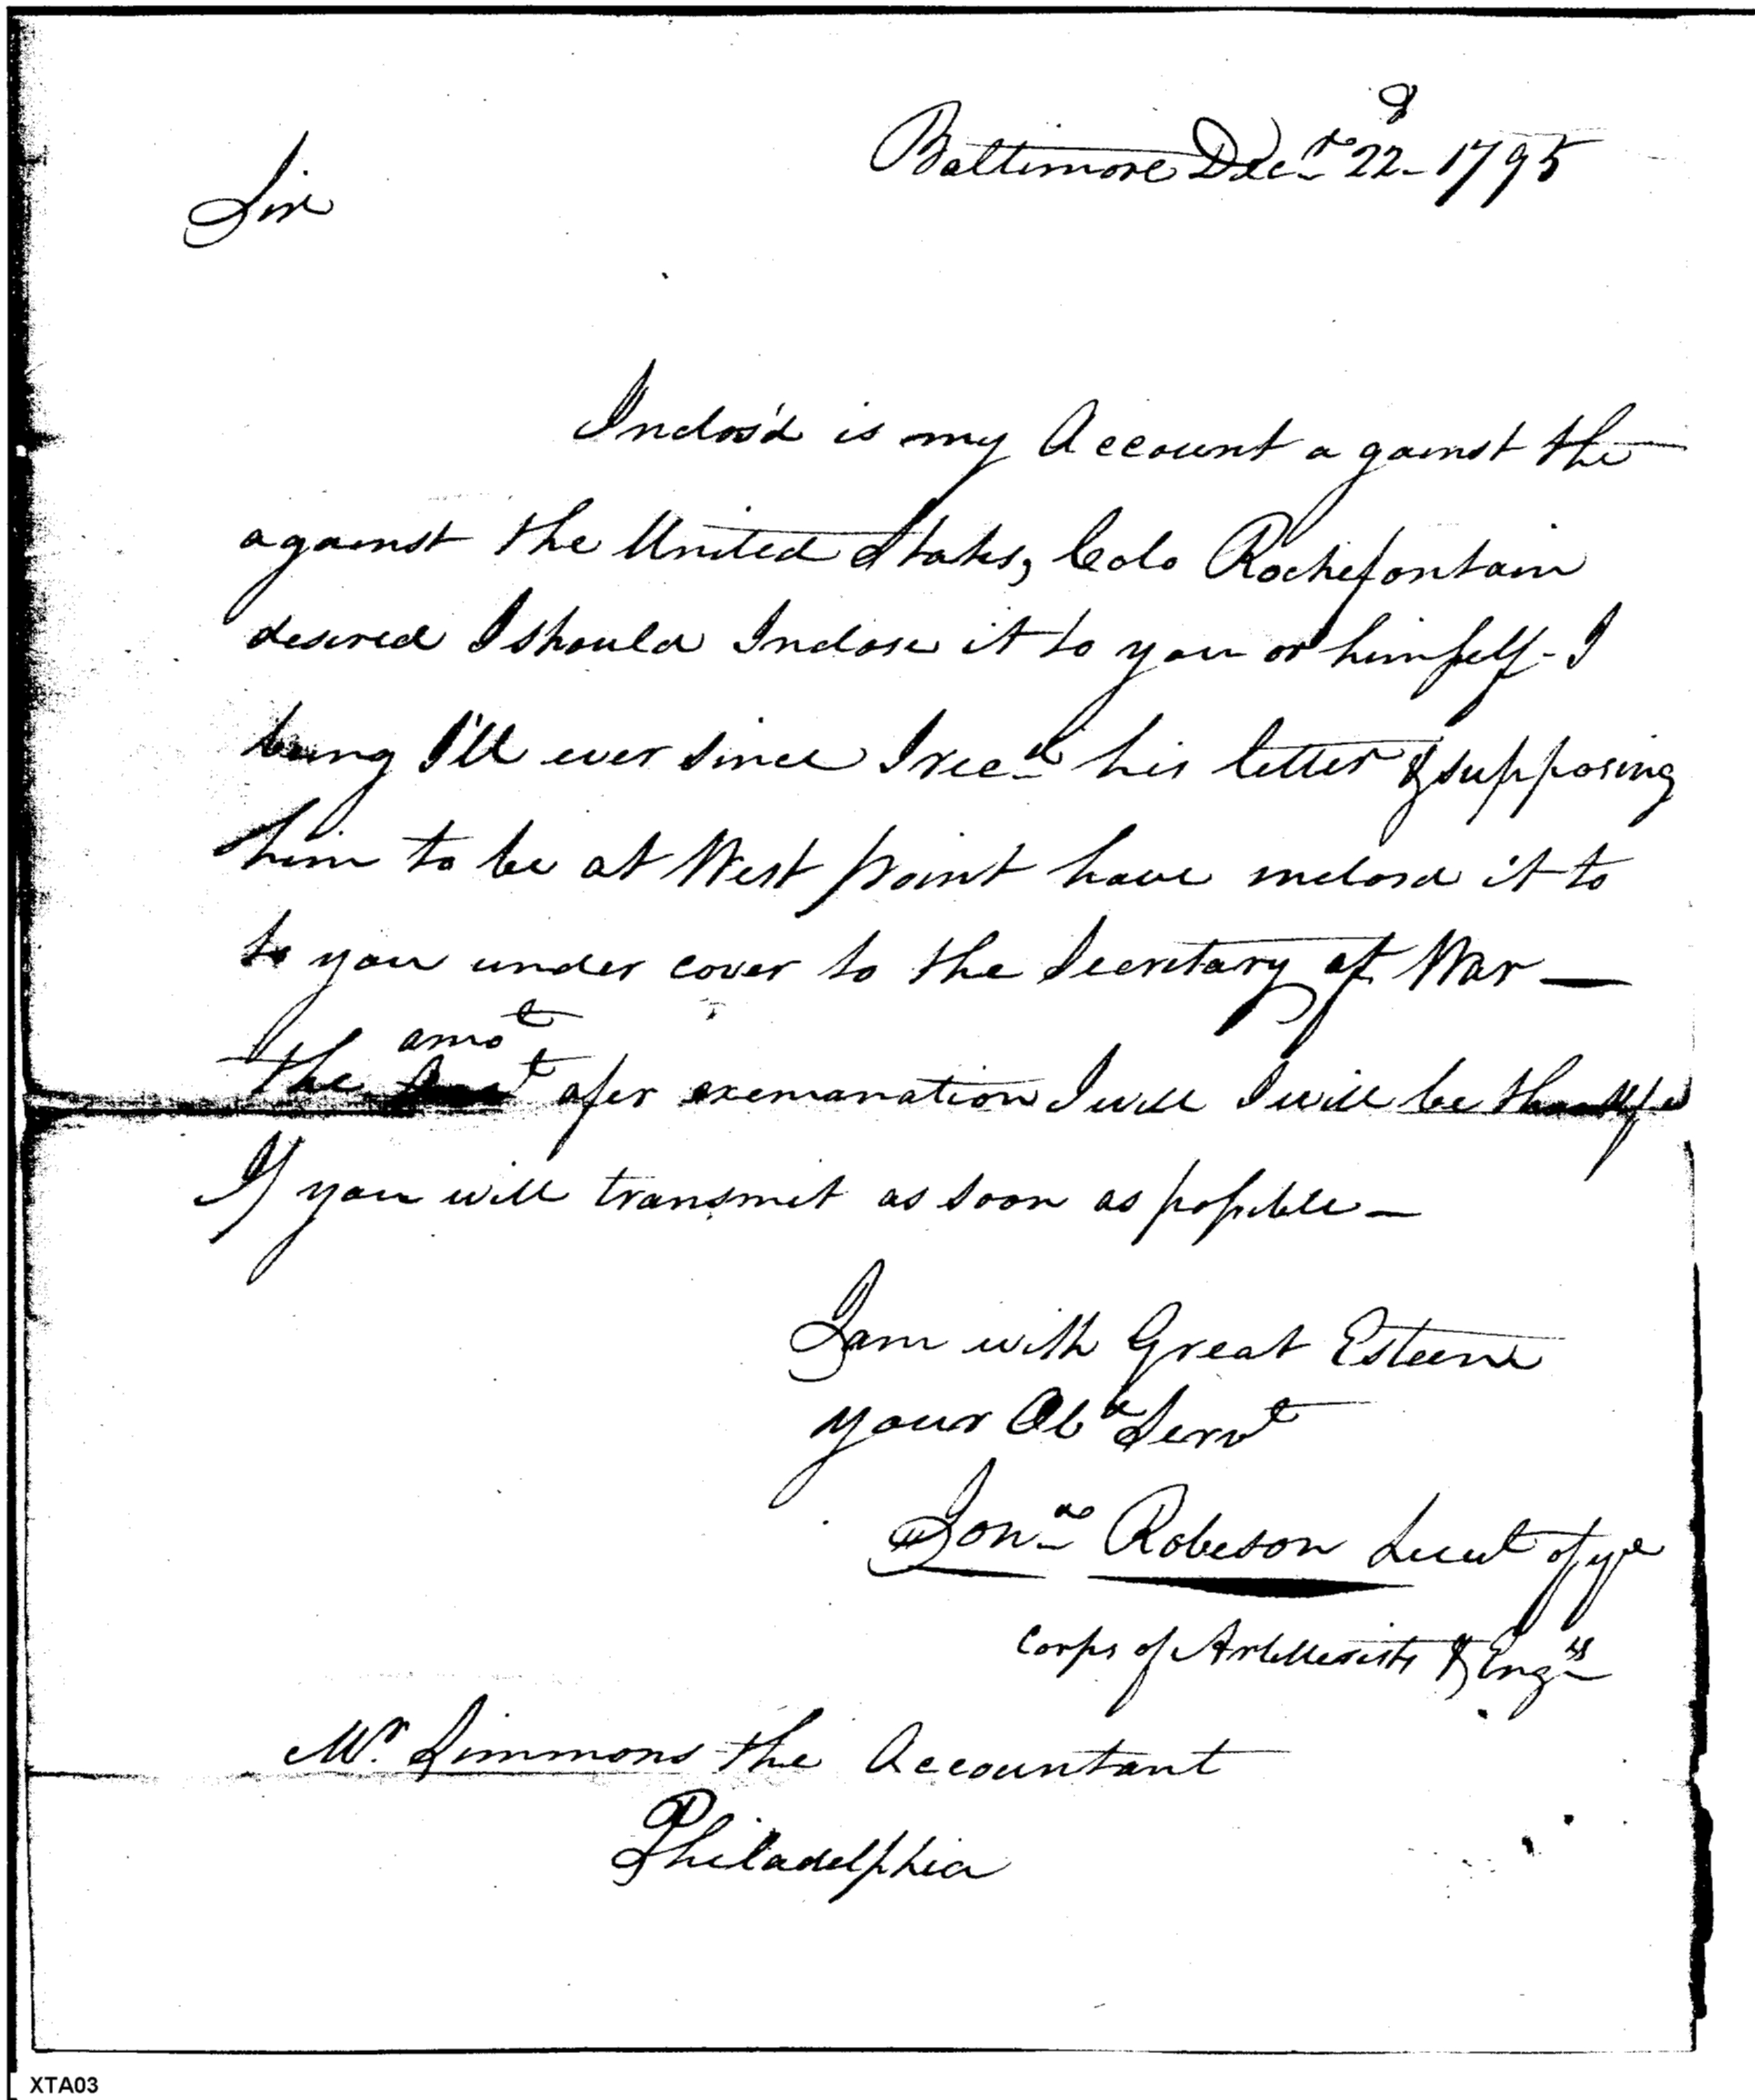 Baltimore Decr 22d 1795
Sir
Inclos'd is my Account against the
against the United States, Colo Rochefontain
desired I should Inclose it to you or himself - I
being I'll ever since I recd his letter & supposing
him to be at West point have inclosd it to
to you under cover to the Secretary of War —
The amot afer exemanation I will I will be
If you will transmit as soon as possible —
I am with Great Esteem
your Obt Servt
Jona Robeson Lieut of ye
corps of Artillerists & Engrs
Mr. Simmons the Accountant
Philadelphia
XTA03